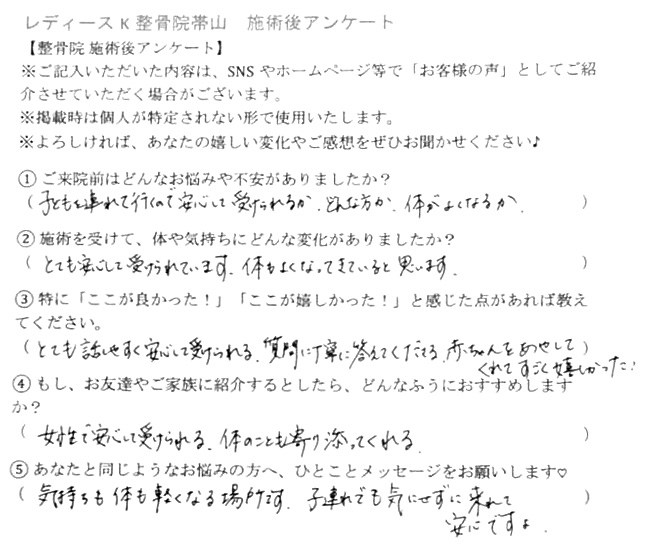 レディースK整骨院帯山 施術後アンケート
【整骨院 施術後アンケート】
※ご記入いただいた内容は、SNSやホームページ等で「お客様の声」としてご紹
介させていただく場合がございます。
※掲載時は個人が特定されない形で使用いたします。
※よろしければ、あなたの嬉しい変化やご感想をぜひお聞かせください♪
① ご来院前はどんなお悩みや不安がありましたか？
( 子どもを連れて行くので安心して受けられるか、どんな方か、体がよくなるか、 )
② 施術を受けて、体や気持ちにどんな変化がありましたか？
( とても安心して受けられています、体もよくなってきていると思います、 )
③ 特に「ここが良かった！」「ここが嬉しかった！」と感じた点があれば教え
てください。
( とても話しやすく安心して受けられる、質問に丁寧に答えてくださる、赤ちゃんをあやして )
くれてすごく嬉しかった！
④ もし、お友達やご家族に紹介するとしたら、どんなふうにおすすめします
か？
( 女性で安心して受けられる、体のことも寄り添ってくれる、 )
⑤ あなたと同じようなお悩みの方へ、ひとことメッセージをお願いします♡
( 気持ちも体も軽くなる場所です、子連れでも気にせずに来れて )
安心ですよ、